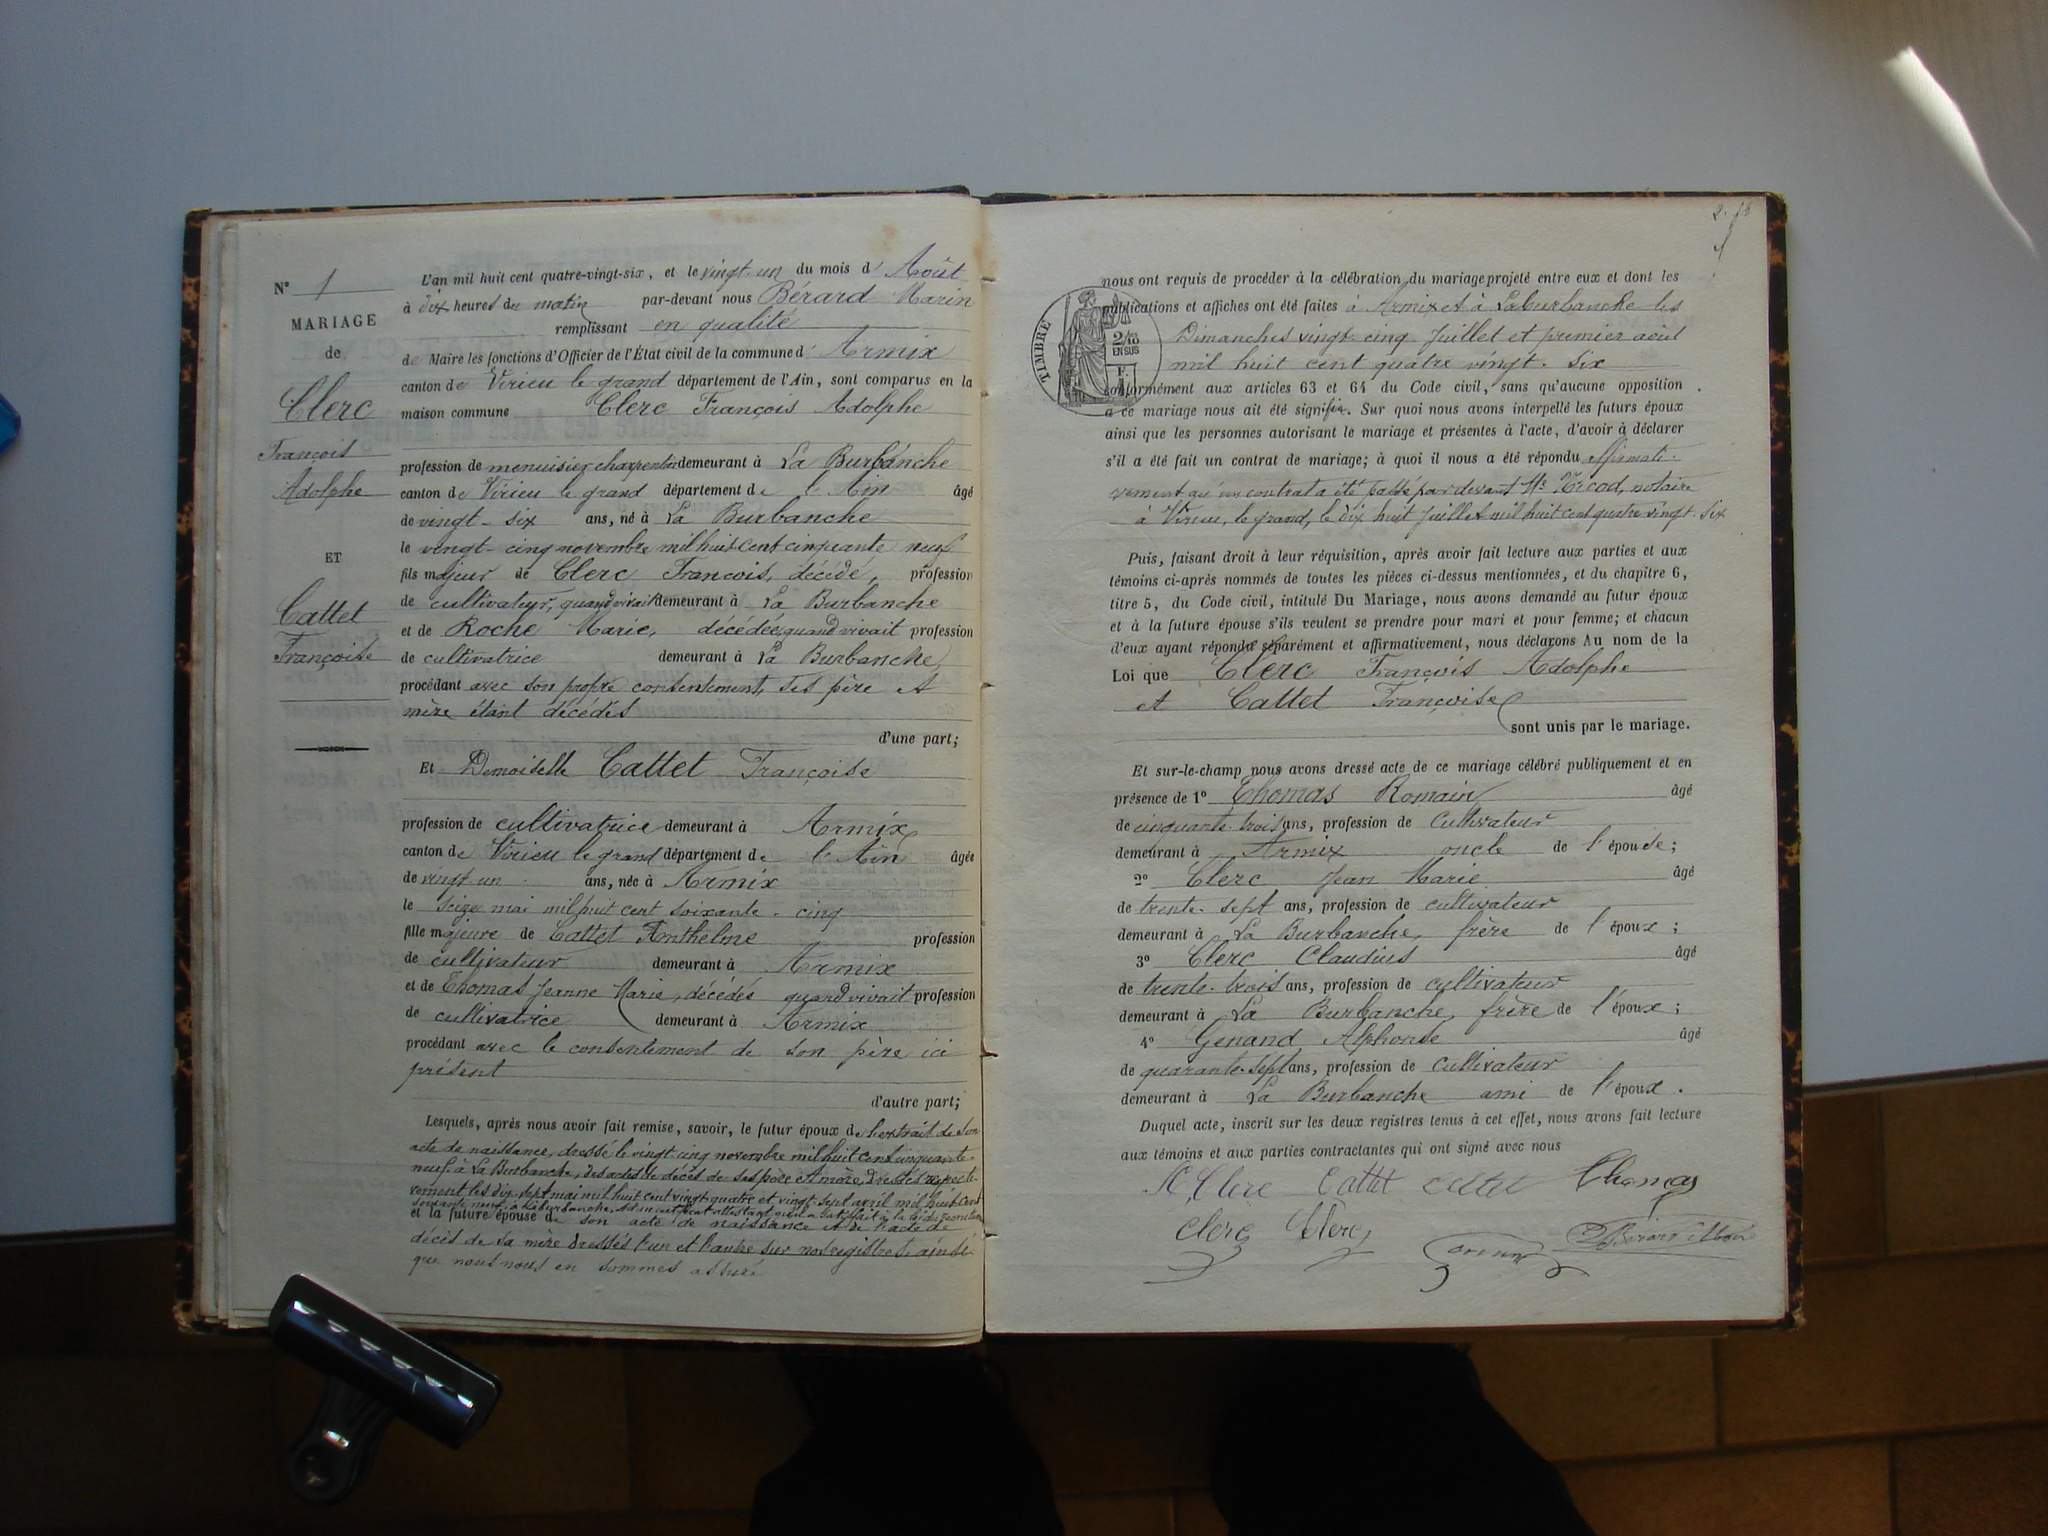 N° 1
MARIAGE
de
Clerc
François
Adolphe
ET
Cattet
Françoise
L'an mil huit cent quatre-vingt-six, et le vingt-un du mois d'Août
à dix heures du matin par-devant nous Bérard Marin
remplissant en qualité
de Maire les fonctions d'Officier de l'État civil de la commune d'Armix
canton de Virieu le grand département de l'Ain, sont comparus en la
maison commune Clerc François Adolphe
profession de menuisier charpentier demeurant à La Burbanche
canton de Virieu le grand département de l'Ain âgé
de vingt-six ans, né à La Burbanche
le vingt-cinq novembre mil huit cent cinquante neuf
fils majeur de Clerc François, décédé, profession
de cultivateur, quand vivait demeurant à La Burbanche
et de Roche Marie, décédée, quand vivait profession
de cultivatrice demeurant à La Burbanche,
procédant avec son propre consentement, ses père et
mère étant décédés
d'une part;
Et Demoiselle Cattet Françoise
profession de cultivatrice demeurant à Armix
canton de Virieu le grand département de l'Ain âgée
de vingt-un ans, née à Armix
le seize mai mil huit cent soixante-cinq
fille majeure de Cattet Anthelme profession
de cultivateur demeurant à Armix
et de Thomas Jeanne Marie, décédés quand vivait profession
de cultivatrice demeurant à Armix
procédant avec le consentement de son père ici
présent
d'autre part;
Lesquels, après nous avoir fait remise, savoir, le futur époux de l'extrait de son
acte de naissance, dressé le vingt cinq novembre mil huit cent cinquante-
neuf à La Burbanche, des actes de décès de ses père et mère, dressés respecti-
vement, les dix-sept mai mil huit cent vingt-quatre et vingt-sept avril mil huit cent
soixante neuf, à La burbanche, et d'un certificat attestant qu'il a satisfait à la loi du recrutement
et la future épouse de son acte de naissance et de l'acte de
décès de sa mère dressés l'un et l'autre sur nos registres, ainsi
que nous nous en sommes assuré
TIMBRE
2/10
EN SUS
nous ont requis de procéder à la célébration du mariage projeté entre eux et dont les
publications et affiches ont été faites à Armix et à Laburbanche les
Dimanches vingt-cinq Juillet et premier août
mil huit cent quatre vingt-six
conformément aux articles 63 et 64 du Code civil, sans qu'aucune opposition
à ce mariage nous ait été signifiée. Sur quoi nous avons interpellé les futurs époux
ainsi que les personnes autorisant le mariage et présentes à l'acte, d'avoir à déclarer
s'il a été fait un contrat de mariage; à quoi il nous a été répondu affirmati-
vement qu'un contrat a été passé par devant Me notaire
à Virieu, le grand, le dix huit Juillet mil huit cent quatre vingt-six
Puis, faisant droit à leur réquisition, après avoir fait lecture aux parties et aux
témoins ci-après nommés de toutes les pièces ci-dessus mentionnées, et du chapitre 6,
titre 5, du Code civil, intitulé Du Mariage, nous avons demandé au futur époux
et à la future épouse s'ils veulent se prendre pour mari et pour femme; et chacun
d'eux ayant répondu séparément et affirmativement, nous déclarons Au nom de la
Loi que Clerc François Adolphe
et Cattet Françoise
sont unis par le mariage.
Et sur-le-champ nous avons dressé acte de ce mariage célébré publiquement et en
présence de 1° Thomas Romain âgé
de cinquante-trois ans, profession de cultivateur
demeurant à Armix oncle de l'épouse;
2° Clerc Jean Marie âgé
de trente-sept ans, profession de cultivateur
demeurant à La Burbanche, frère de l'époux;
3° Clerc Claudius âgé
de trente-trois ans, profession de cultivateur
demeurant à La Burbanche, frère de l'époux;
4° Genand Alphonse âgé
de quarante-sept ans, profession de cultivateur
demeurant à La Burbanche ami de l'époux.
Duquel acte, inscrit sur les deux registres tenus à cet effet, nous avons fait lecture
aux témoins et aux parties contractantes qui ont signé avec nous
Clerc Cattet Cattet Thomas
Clerc Clerc